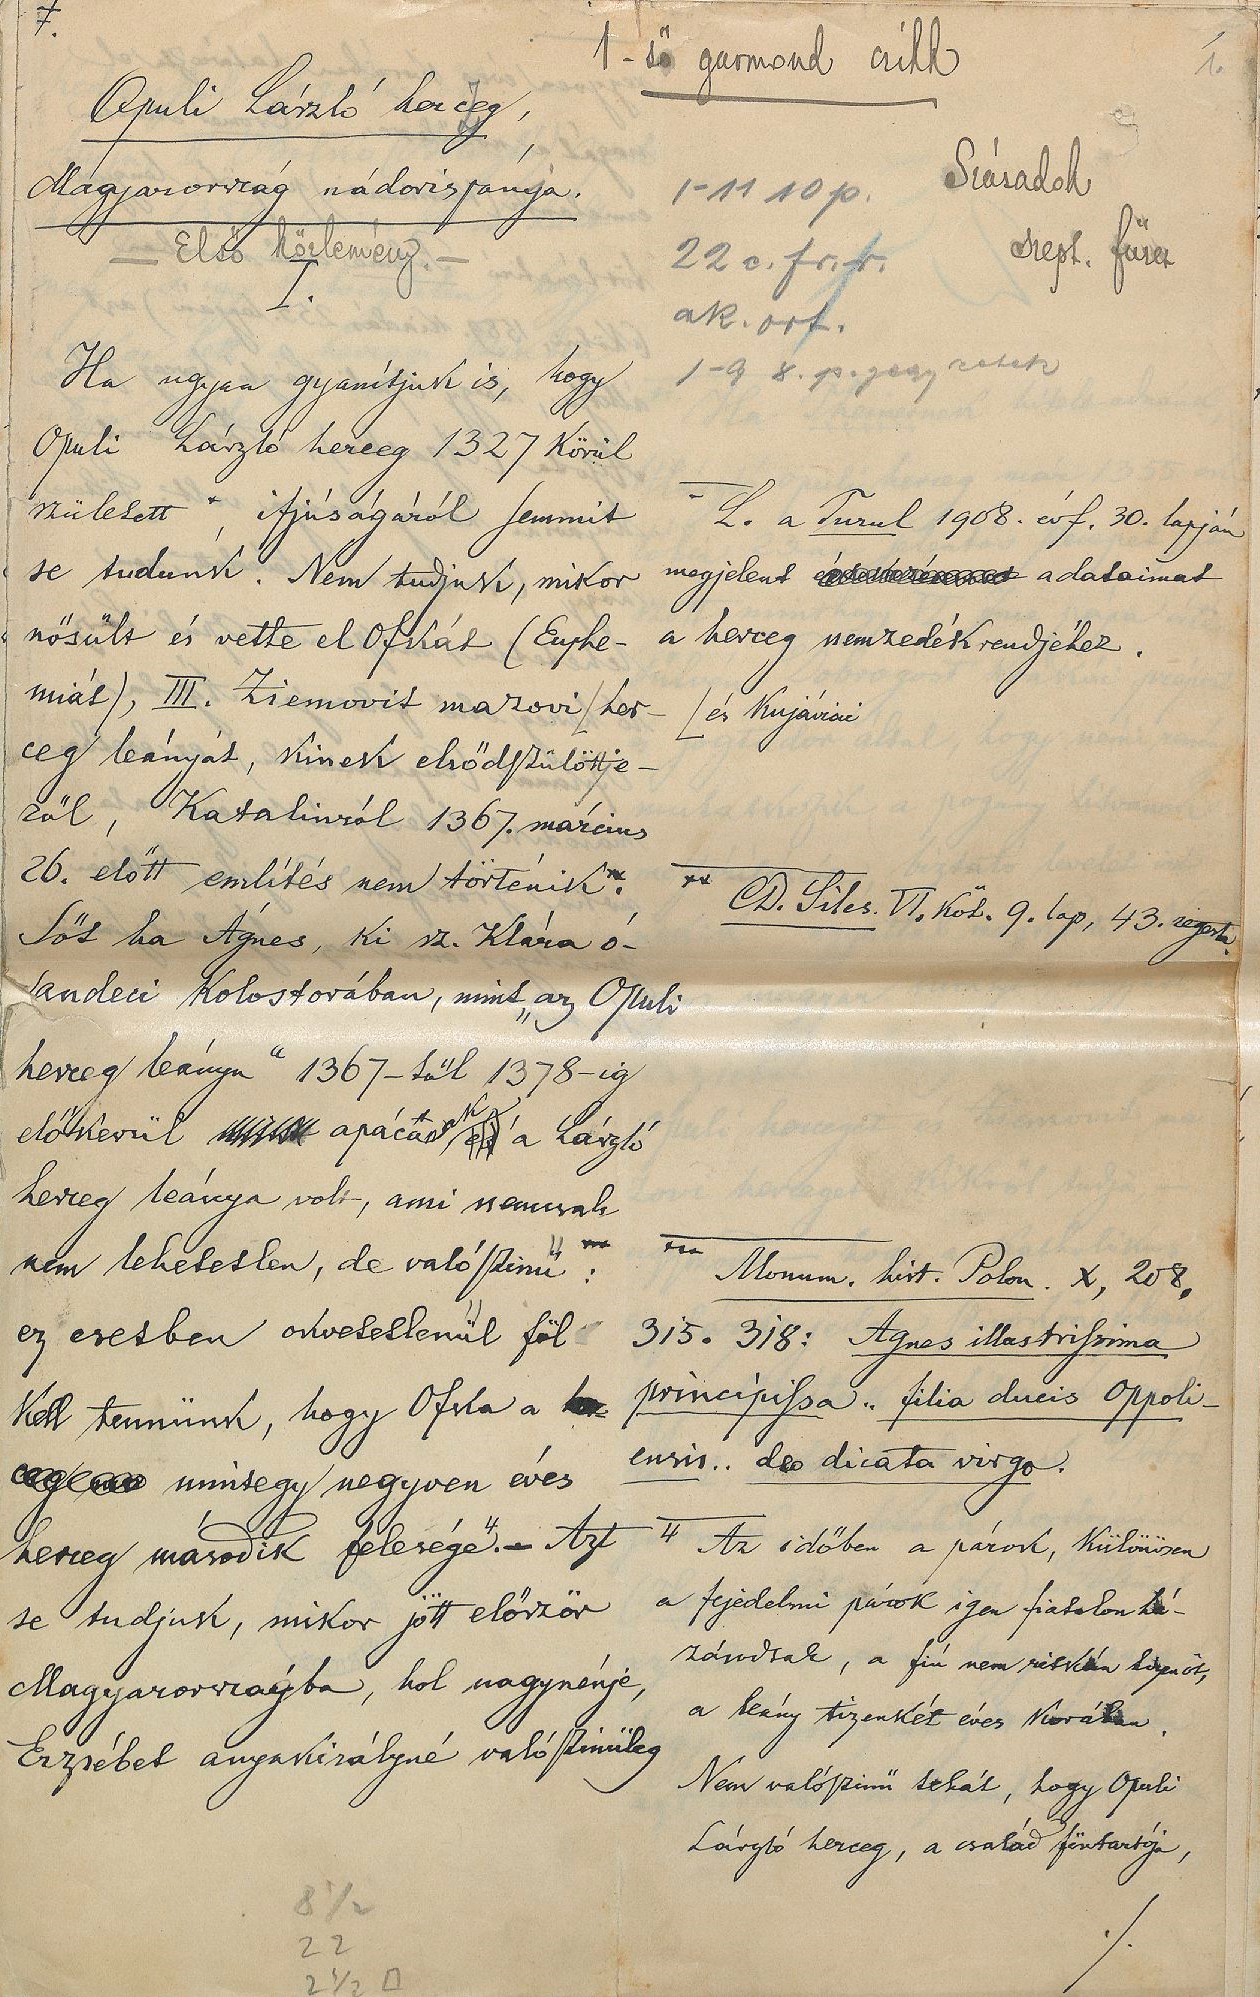 7.
1-ső garmond cikk
1.
Opuli László herceg,
Magyarország nádorispánja.
— Első közlemény. —
I.
Századok
szept. füzet
1-11 10 p.
22 c. fr. fr.
ak. ort.
1-9 8. p. jegyzetek
Ha ugyan gyanítjuk is, hogy
Opuli László herceg 1327 körül
született *, ifjúságáról semmit
se tudunk. Nem tudjuk, mikor
nősült és vette el Ofkát (Euphe-
miát), III. Ziemovit mazovi[her-
ceg leányát, kinek elsődszülöttje-
ről, Katalinról 1367. március
26. előtt említés nem történik **.
Sőt ha Ágnes, ki sz. Klára ó-
sandeci kolostorában, mint „az Opuli
herceg leánya“ 1367-től 1378-ig
előkerül apácának a László
herceg leánya volt, ami nemcsak
nem lehetetlen, de valószinű *** :
ez esetben okvetetlenül föl
kell tennünk, hogy Ofka a
mintegy negyven éves
herceg második felesége 4. — Azt
se tudjuk, mikor jött először
Magyarországba, hol nagynénje,
Erzsébet anyakirályné valószinűleg
* L. a Turul 1908. évf. 30. lapján
megjelent adataimat
a herceg nemzedékrendjéhez.
[és kujáviai
** CD. Siles. VI. köt. 9. lap, 43. regesta.
*** Monum. hist. Polon. X, 208,
315. 318: Agnes illustrissima
principissa .. filia ducis Oppoli-
ensis .. deo dicata virgo.
4 Az időben a párok, különösen
a fejedelmi párok igen fiatalon há-
zasodtak, a fiú nem ritkán tizenöt,
a leány tizenkét éves korában.
Nem valószinű tehát, hogy Opuli
László herceg, a család föntartója,
./.
8 1/2
22
2 1/2 □